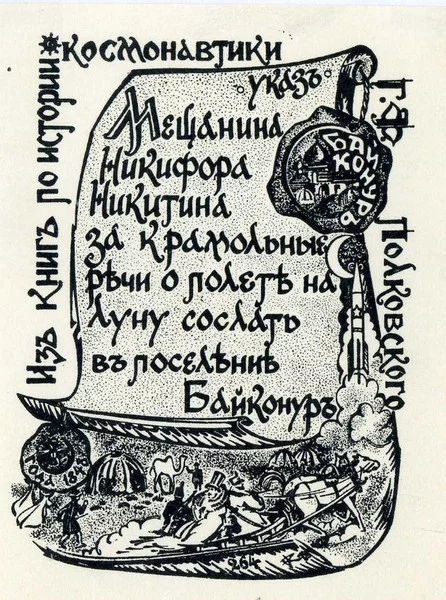 Изъ книгъ по истории
космонавтики
Г.Ф. Полковского
указъ
Мещанина
Никифора
Никитина
за крамольные
рѣчи о полетѣ на
луну сослать
въ поселѣние
Байконуръ
БАЙ
КОНУРЪ